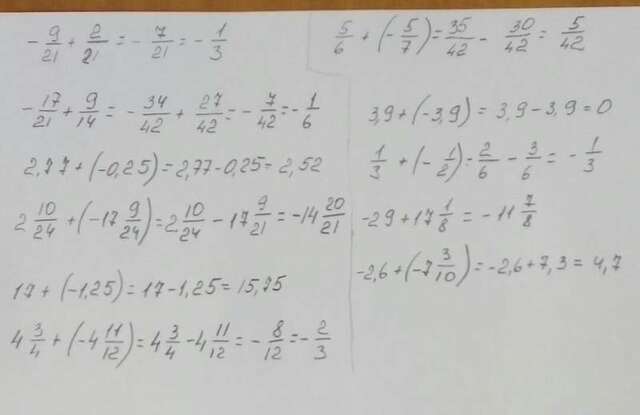 -9/21 + 2/21 = -7/21 = -1/3
-17/21 + 9/14 = -34/42 + 27/42 = -7/42 = -1/6
2,77 + (-0,25) = 2,77 - 0,25 = 2,52
2 10/24 + (-17 9/24) = 2 10/24 - 17 9/21 = -14 20/21
17 + (-1,25) = 17 - 1,25 = 15,75
4 3/4 + (-4 11/12) = 4 3/4 - 4 11/12 = -8/12 = -2/3
5/6 + (-5/7) = 35/42 - 30/42 = 5/42
3,9 + (-3,9) = 3,9 - 3,9 = 0
1/3 + (-1/2) = 2/6 - 3/6 = -1/3
-29 + 17 1/8 = -11 7/8
-2,6 + (-7 3/10) = -2,6 + 7,3 = 4,7